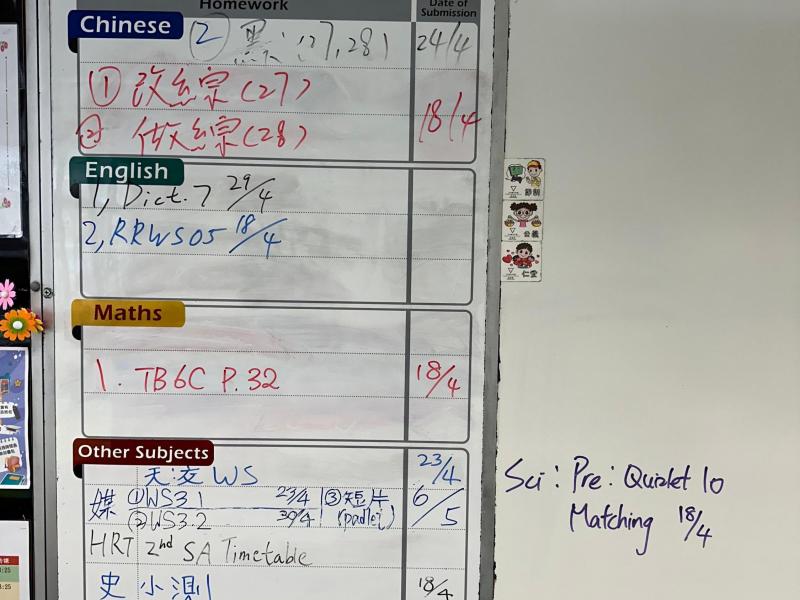 Homework
Date of Submission
Chinese
② (27, 28) 24/4
① 改綜(27)
② 做綜(28) 18/4
English
1, Dict. 7 29/4
2, RRWS05 18/4
Maths
1. TB6C P.32 18/4
Other Subjects
WS 23/4
媒 ①WS3.1 23/4 ③短片 6/5
②WS3.2 (padlet)
HRT 2nd SA Timetable
史 小測 18/4
節制
公義
仁愛
Sci: Pre: Quizlet 10
Matching 18/4